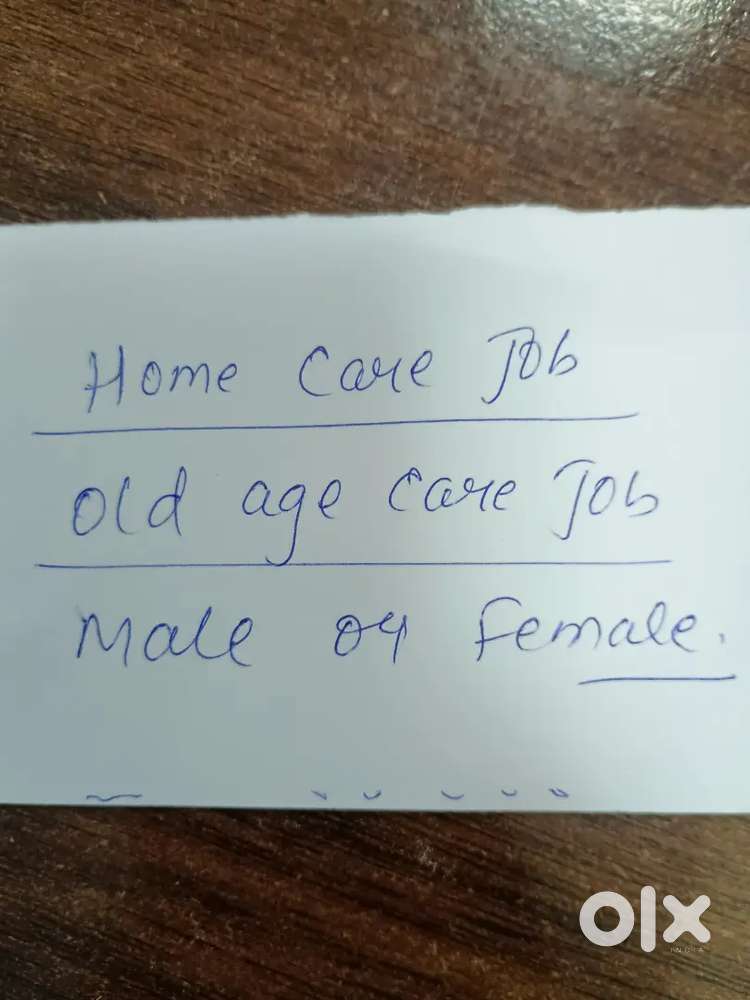 Home Care Job
Old age care Job
Male or Female.
olx